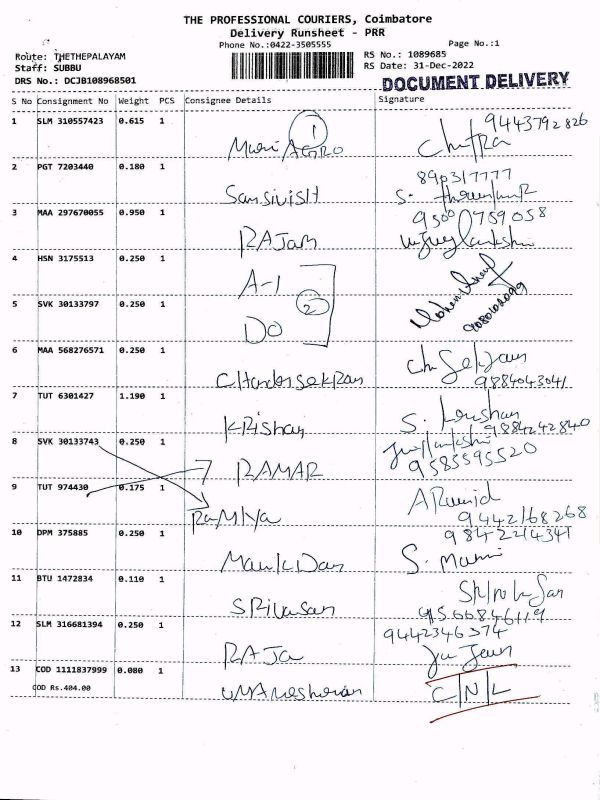 THE PROFESSIONAL COURIERS, Coimbatore
Delivery Runsheet - PRR
Phone No.:0422-3505555
Page No.:1
Route: THETHEPALAYAM
RS No.: 1089685
Staff: SUBBU
RS Date: 31-Dec-2022
DRS No.: DCJB108968501
DOCUMENT DELIVERY
S No Consignment No Weight PCS Consignee Details Signature
1 SLM 310557423 0.615 1
1
AGRO
9443792826
2 PGT 7203440 0.180 1
8903177777
S.
3 MAA 297670055 0.950 1 RAJam
9500759058
4 HSN 3175513 0.250 1 A-1
2
5 SVK 30133797 0.250 1 DO
6 MAA 568276571 0.250 1
9884043041
7 TUT 6301427 1.190 1 KRishan
S.
9884242840
8 SVK 30133743 0.250 1 RAMAR
9585595520
9 TUT 974430 0.175 1 RaMIya
9442168268
10 DPM 375885 0.250 1
9842214341
S. Mani
11 BTU 1472834 0.110 1 SRivasan
9566846119
12 SLM 316681394 0.250 1 RAJa
9442346374
13 COD 1111837999 0.080 1
C/N/L
COD Rs.404.00